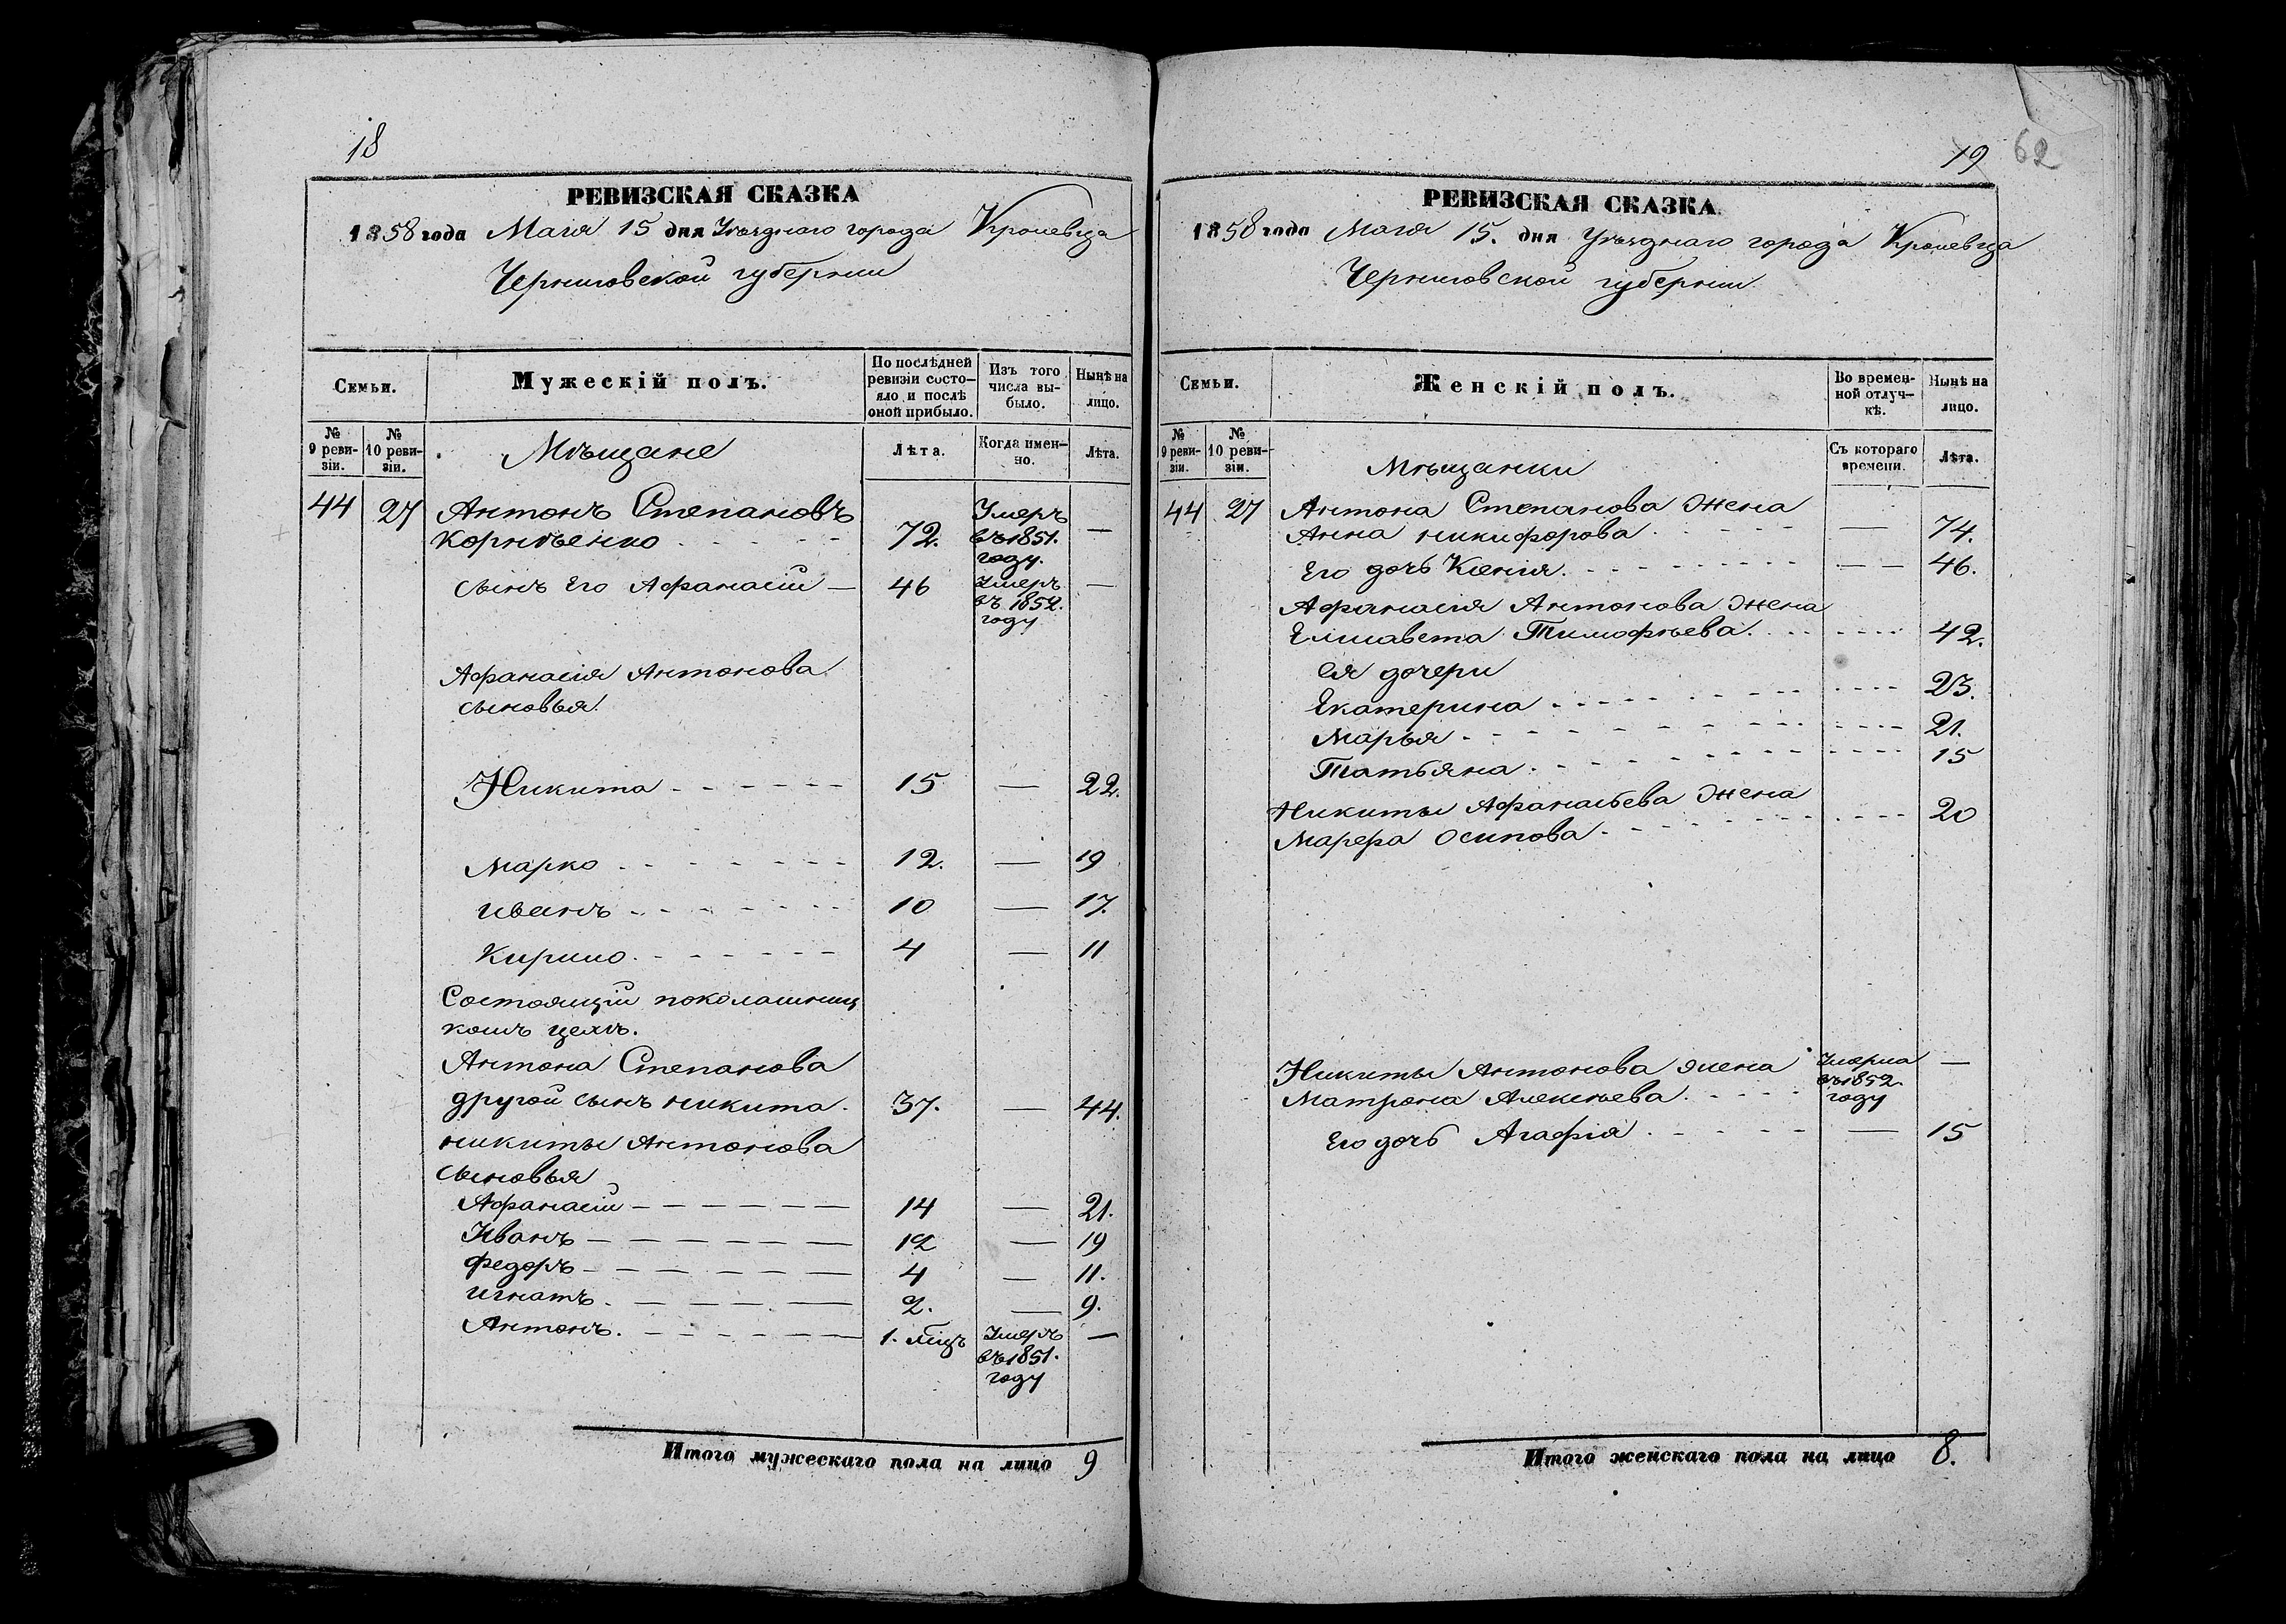 18
РЕВИЗСКАЯ СКАЗКА
1858 года Маія 15 дня Уѣзднаго города Кролевца
Черниговской губерніи
Семьи.
Мужескій полъ.
По послѣдней ревизіи состо-
яло и послѣ оной прибыло.
Изъ того числа вы-
было.
Нынѣ на лицо.
№ 9 реви-
зіи.
№ 10 реви-
зіи.
Мѣщане
Лѣта.
Когда имен-
но.
Лѣта.
44 27 Антонъ Степановъ
Корнѣенко 72. Умеръ въ 1851. году. —
сынъ Его Афанасій — 46 Умеръ въ 1852. году —
Афанасія Антонова
сыновья.
Никита 15 — 22.
Марко 12. — 19
Иванъ 10 — 17.
Кирило 4 — 11
Состоящій
цехѣ.
Антона Степанова
другой сынъ Никита. 37. — 44.
Никиты Антонова
сыновья
Афанасій 14 — 21.
Иванъ 12 — 19
Федоръ 4 — 11.
Игнатъ. 2. — 9.
Антонъ. 1. мѣцъ Умеръ въ 1851. году —
Итого мужескаго пола на лицо 9
19 62
РЕВИЗСКАЯ СКАЗКА
1858 года Маія 15. дня Уѣзднаго города Кролевца
Черниговской губерніи
Семьи.
Женскій полъ.
Во времен-
ной отлуч-
кѣ.
Нынѣ на лицо.
№ 9 реви-
зіи.
№ 10 реви-
зіи.
Мѣщанки
Съ котораго времени.
Лѣта.
44 27 Антона Степанова жена
Анна Никифорова — 74.
Его дочь Ксенія. — — 46.
Афанасія Антонова жена
Елисавета Тимофѣева. 42.
Ея дочери
Екатерина 23.
Марья 21.
Татьяна 15
Никиты Афанасьева жена
Марфа Осипова 20
Никиты Антонова жена
Матрона Алексѣева. Умерла въ 1852. году —
Его дочь Агафія — 15
Итого женскаго пола на лицо 8.